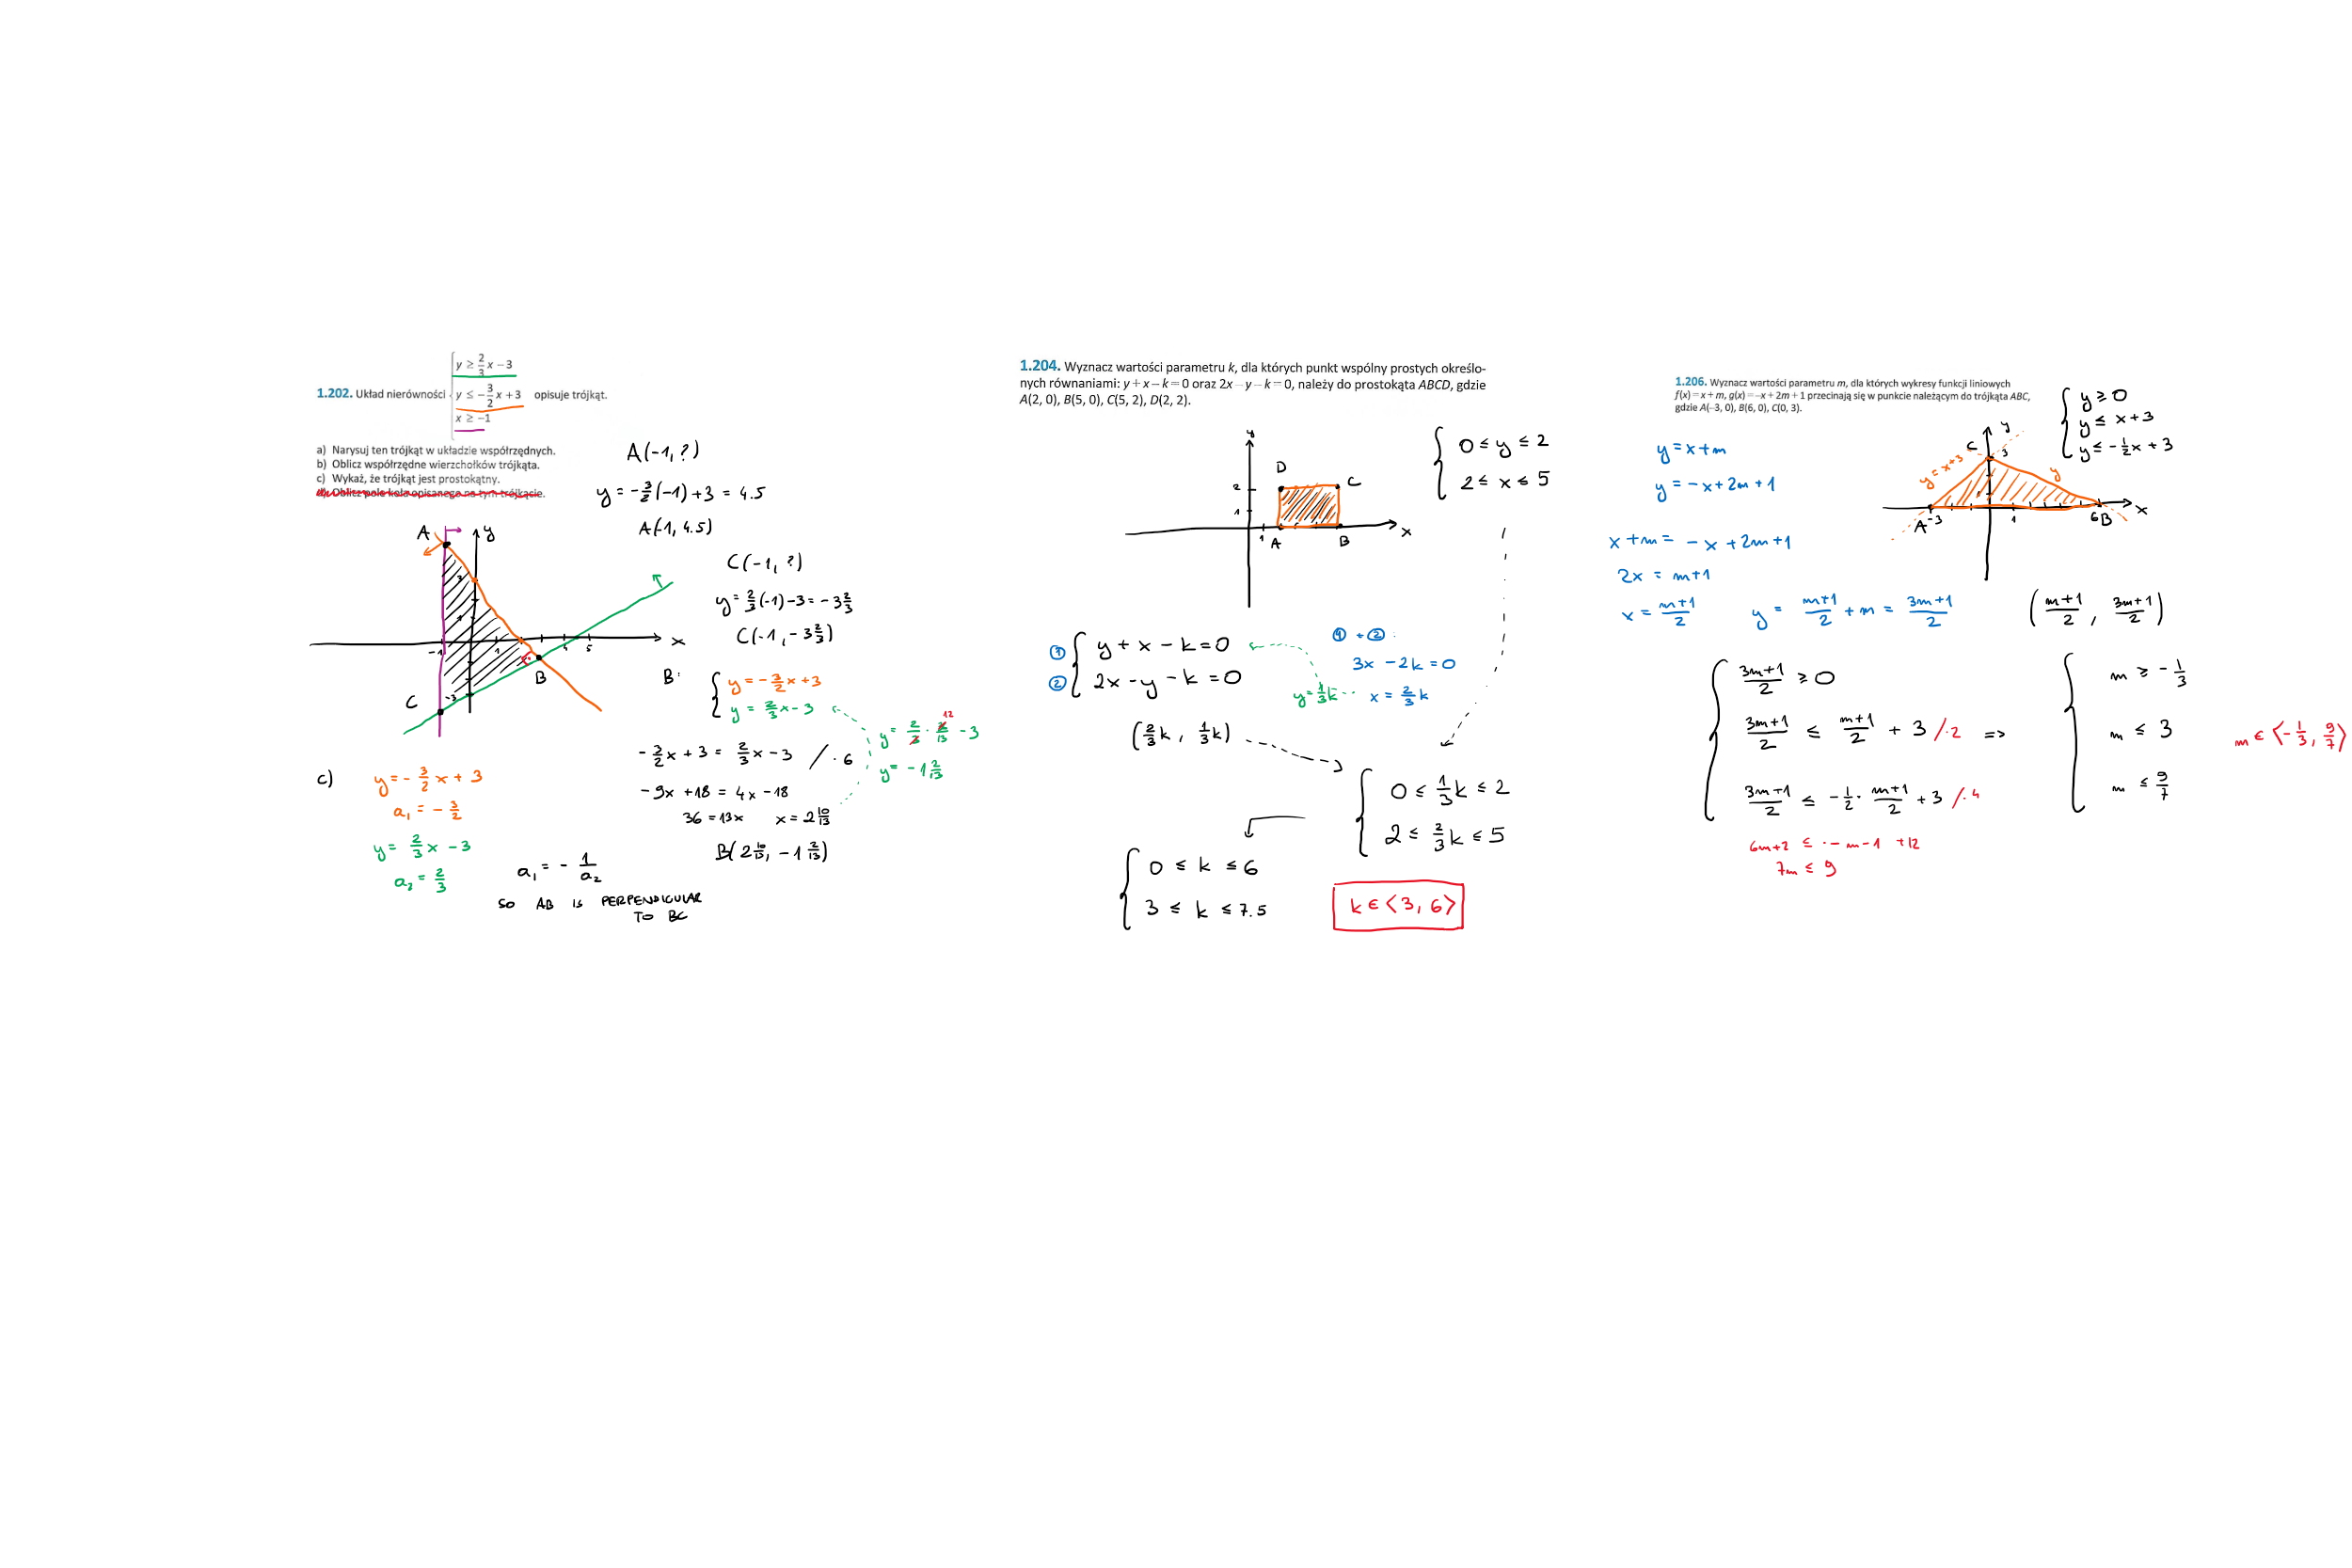 1.202. Układ nierówności { y ≥ 2/3 x – 3
y ≤ – 3/2 x + 3 opisuje trójkąt.
x ≥ –1
a) Narysuj ten trójkąt w układzie współrzędnych.
b) Oblicz współrzędne wierzchołków trójkąta.
c) Wykaż, że trójkąt jest prostokątny.
d) Oblicz pole koła opisanego na tym trójkącie.
A(-1, ?)
y = -3/2(-1) + 3 = 4.5
A(-1, 4.5)
C(-1, ?)
y = 2/3(-1) - 3 = -3 2/3
C(-1, -3 2/3)
A
y
x
-1
1
4
5
-3
B
C
B:
{ y = -3/2x + 3
y = 2/3x - 3
-3/2x + 3 = 2/3x - 3 / · 6
-9x + 18 = 4x - 18
36 = 13x x = 2 10/13
B(2 10/13, -1 2/13)
12
y = 2/3 · 36/13 - 3
y = -1 2/13
c)
y = -3/2x + 3
a₁ = -3/2
y = 2/3x - 3
a₂ = 2/3
a₁ = - 1/a₂
SO AB IS PERPENDICULAR
TO BC
1.204. Wyznacz wartości parametru k, dla których punkt wspólny prostych określo-
nych równaniami: y + x – k = 0 oraz 2x – y – k = 0, należy do prostokąta ABCD, gdzie
A(2, 0), B(5, 0), C(5, 2), D(2, 2).
y
D
C
2
1
1
A
B
x
{ 0 ≤ y ≤ 2
2 ≤ x ≤ 5
① { y + x - k = 0
② 2x - y - k = 0
① + ② :
3x - 2k = 0
y = 1/3k x = 2/3k
(2/3k, 1/3k)
{ 0 ≤ 1/3k ≤ 2
2 ≤ 2/3k ≤ 5
{ 0 ≤ k ≤ 6
3 ≤ k ≤ 7.5
k ∈ ⟨3, 6⟩
1.206. Wyznacz wartości parametru m, dla których wykresy funkcji liniowych
f(x) = x + m, g(x) = –x + 2m + 1 przecinają się w punkcie należącym do trójkąta ABC,
gdzie A(–3, 0), B(6, 0), C(0, 3).
{ y ≥ 0
y ≤ x + 3
y ≤ -1/2x + 3
y
C
3
y = x+3
y
A
-3
1
6
B
x
y = x + m
y = -x + 2m + 1
x + m = -x + 2m + 1
2x = m + 1
x = m+1/2 y = m+1/2 + m = 3m+1/2
(m+1/2, 3m+1/2)
{ 3m+1/2 ≥ 0
3m+1/2 ≤ m+1/2 + 3 /·2 =>
3m+1/2 ≤ -1/2 · m+1/2 + 3 /·4
6m+2 ≤ -m-1 +12
7m ≤ 9
{ m ≥ -1/3
m ≤ 3
m ≤ 9/7
m ∈ ⟨-1/3, 9/7⟩